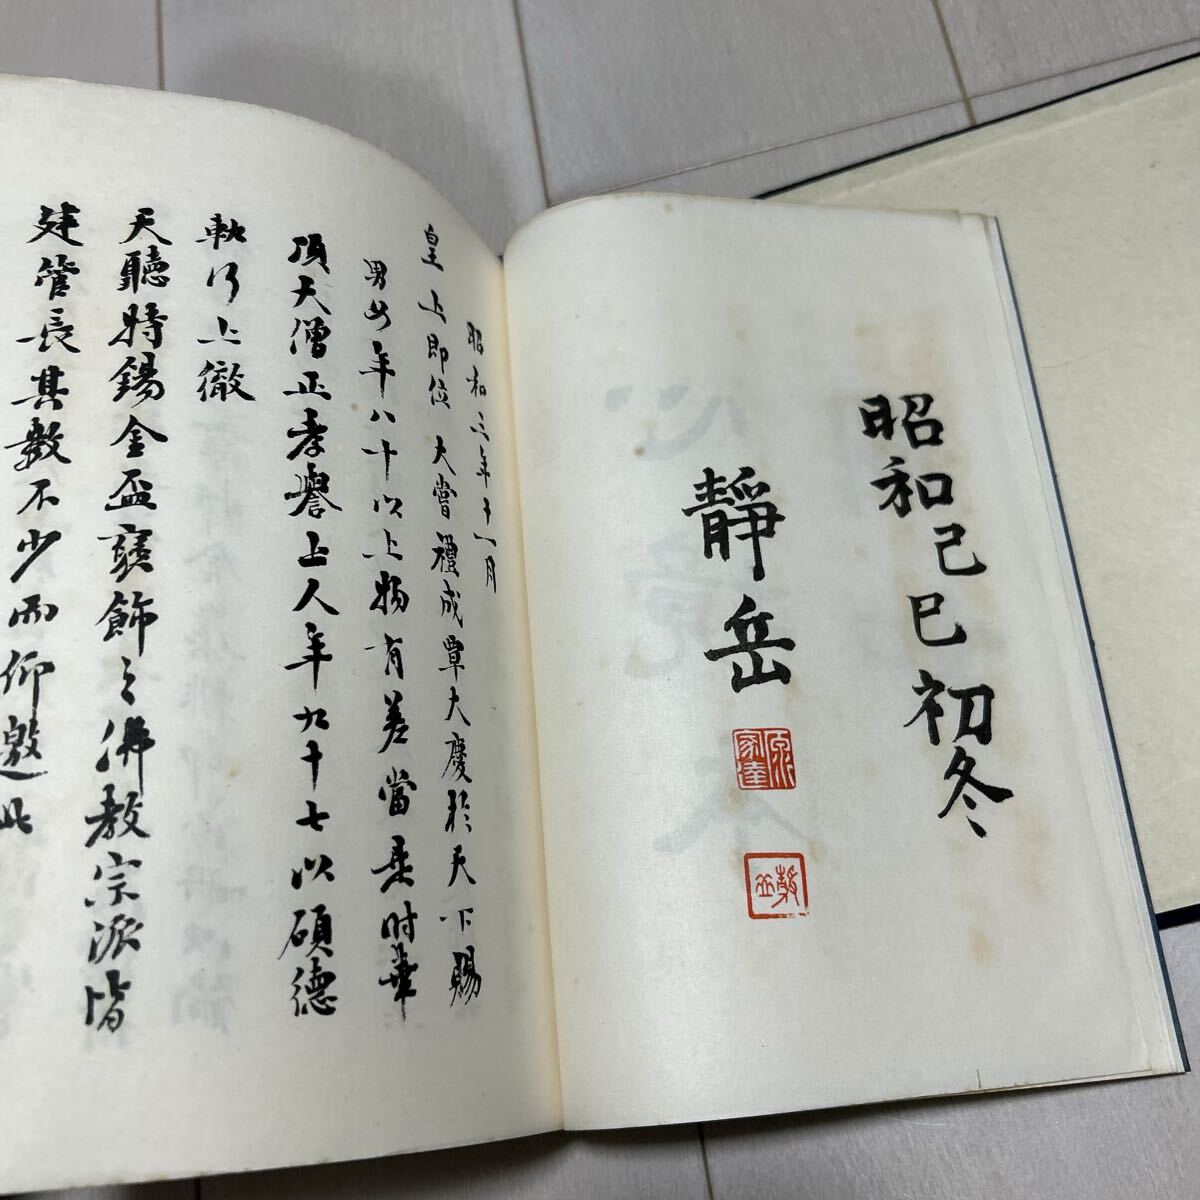 昭和己巳初冬
靜岳
家達
昭和三年十一月
皇上即位大嘗禮成覃大慶於天下賜
男女年八十以上物有差當是時華
頂大僧正孝譽上人年九十七以碩德
執行上徹
天聽特錫金盃襃飾之佛教宗派皆
建管長其數不少而仰邀此